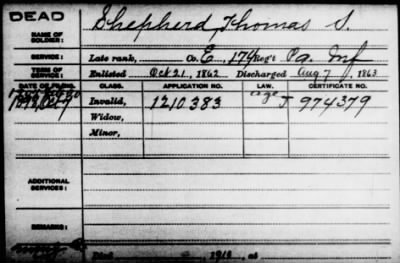 DEAD
NAME OF SOLDIER: Shepherd, Thomas S.
SERVICE: Late rank, Co. E, 174 Reg't Pa. Inf
TERM OF SERVICE: Enlisted Oct 21, 1862 Discharged Aug 7, 1863
DATE OF FILING. CLASS. APPLICATION NO. LAW. CERTIFICATE NO.
Invalid, 1210383 J 974379
Widow,
Minor,
ADDITIONAL SERVICES:
REMARKS:
Died 1918, at